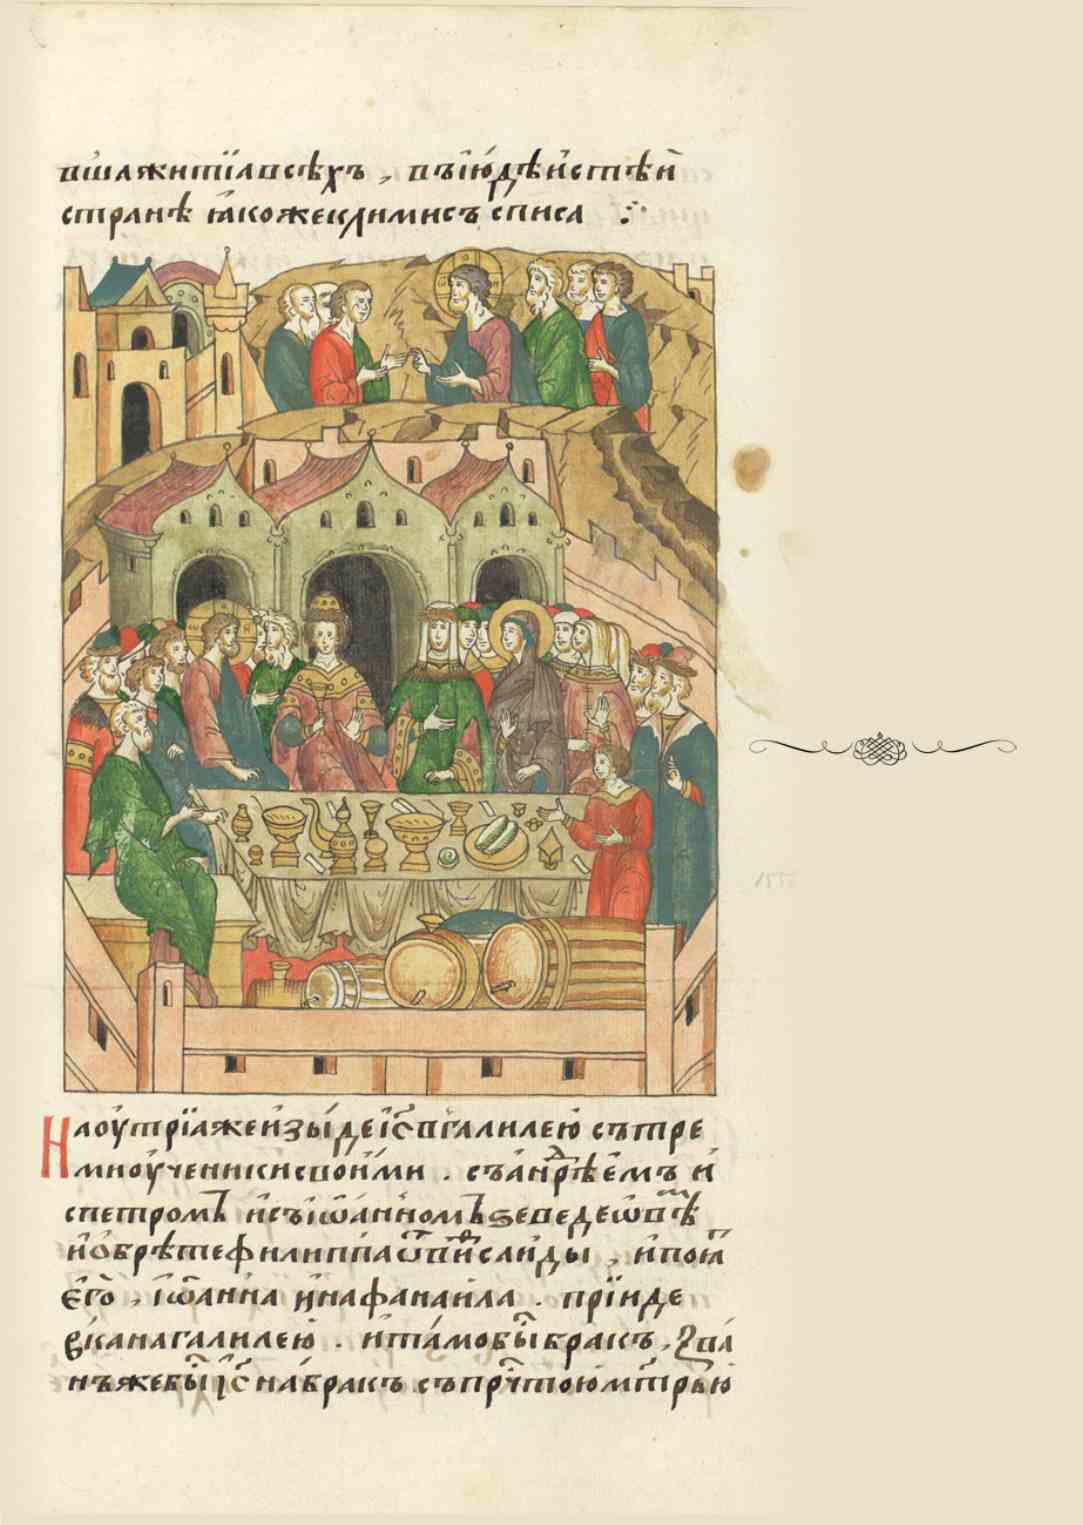 вшаꙗжитїꙗвсѣхъ, въїю́дѣйстѣй
странѣ ꙗ҆коже климисъ списа
Наоу҆трїꙗже и҆зы́де і҆с҃ в галилею съ тре
ми оу҆ченики свои́ми. съ а҆нⷣрѣемъ и҆
с петромъ и҆ съ і҆ѡа́нномъ ѕеведеѡвⷮѣ
и҆ ѡбрѣте филиппа ѿ виⷴсаиды, и҆ поꙗⷮ
є҆го̀, і҆ѡ҆анна и҆ нафанаила. прїиде
в кана галилею. и҆ та́мо бы́ бракъ, зва́
нъ же бы́ і҆с҃ на́ бракъ съ прⷱ҇тою мⷮ҇рью